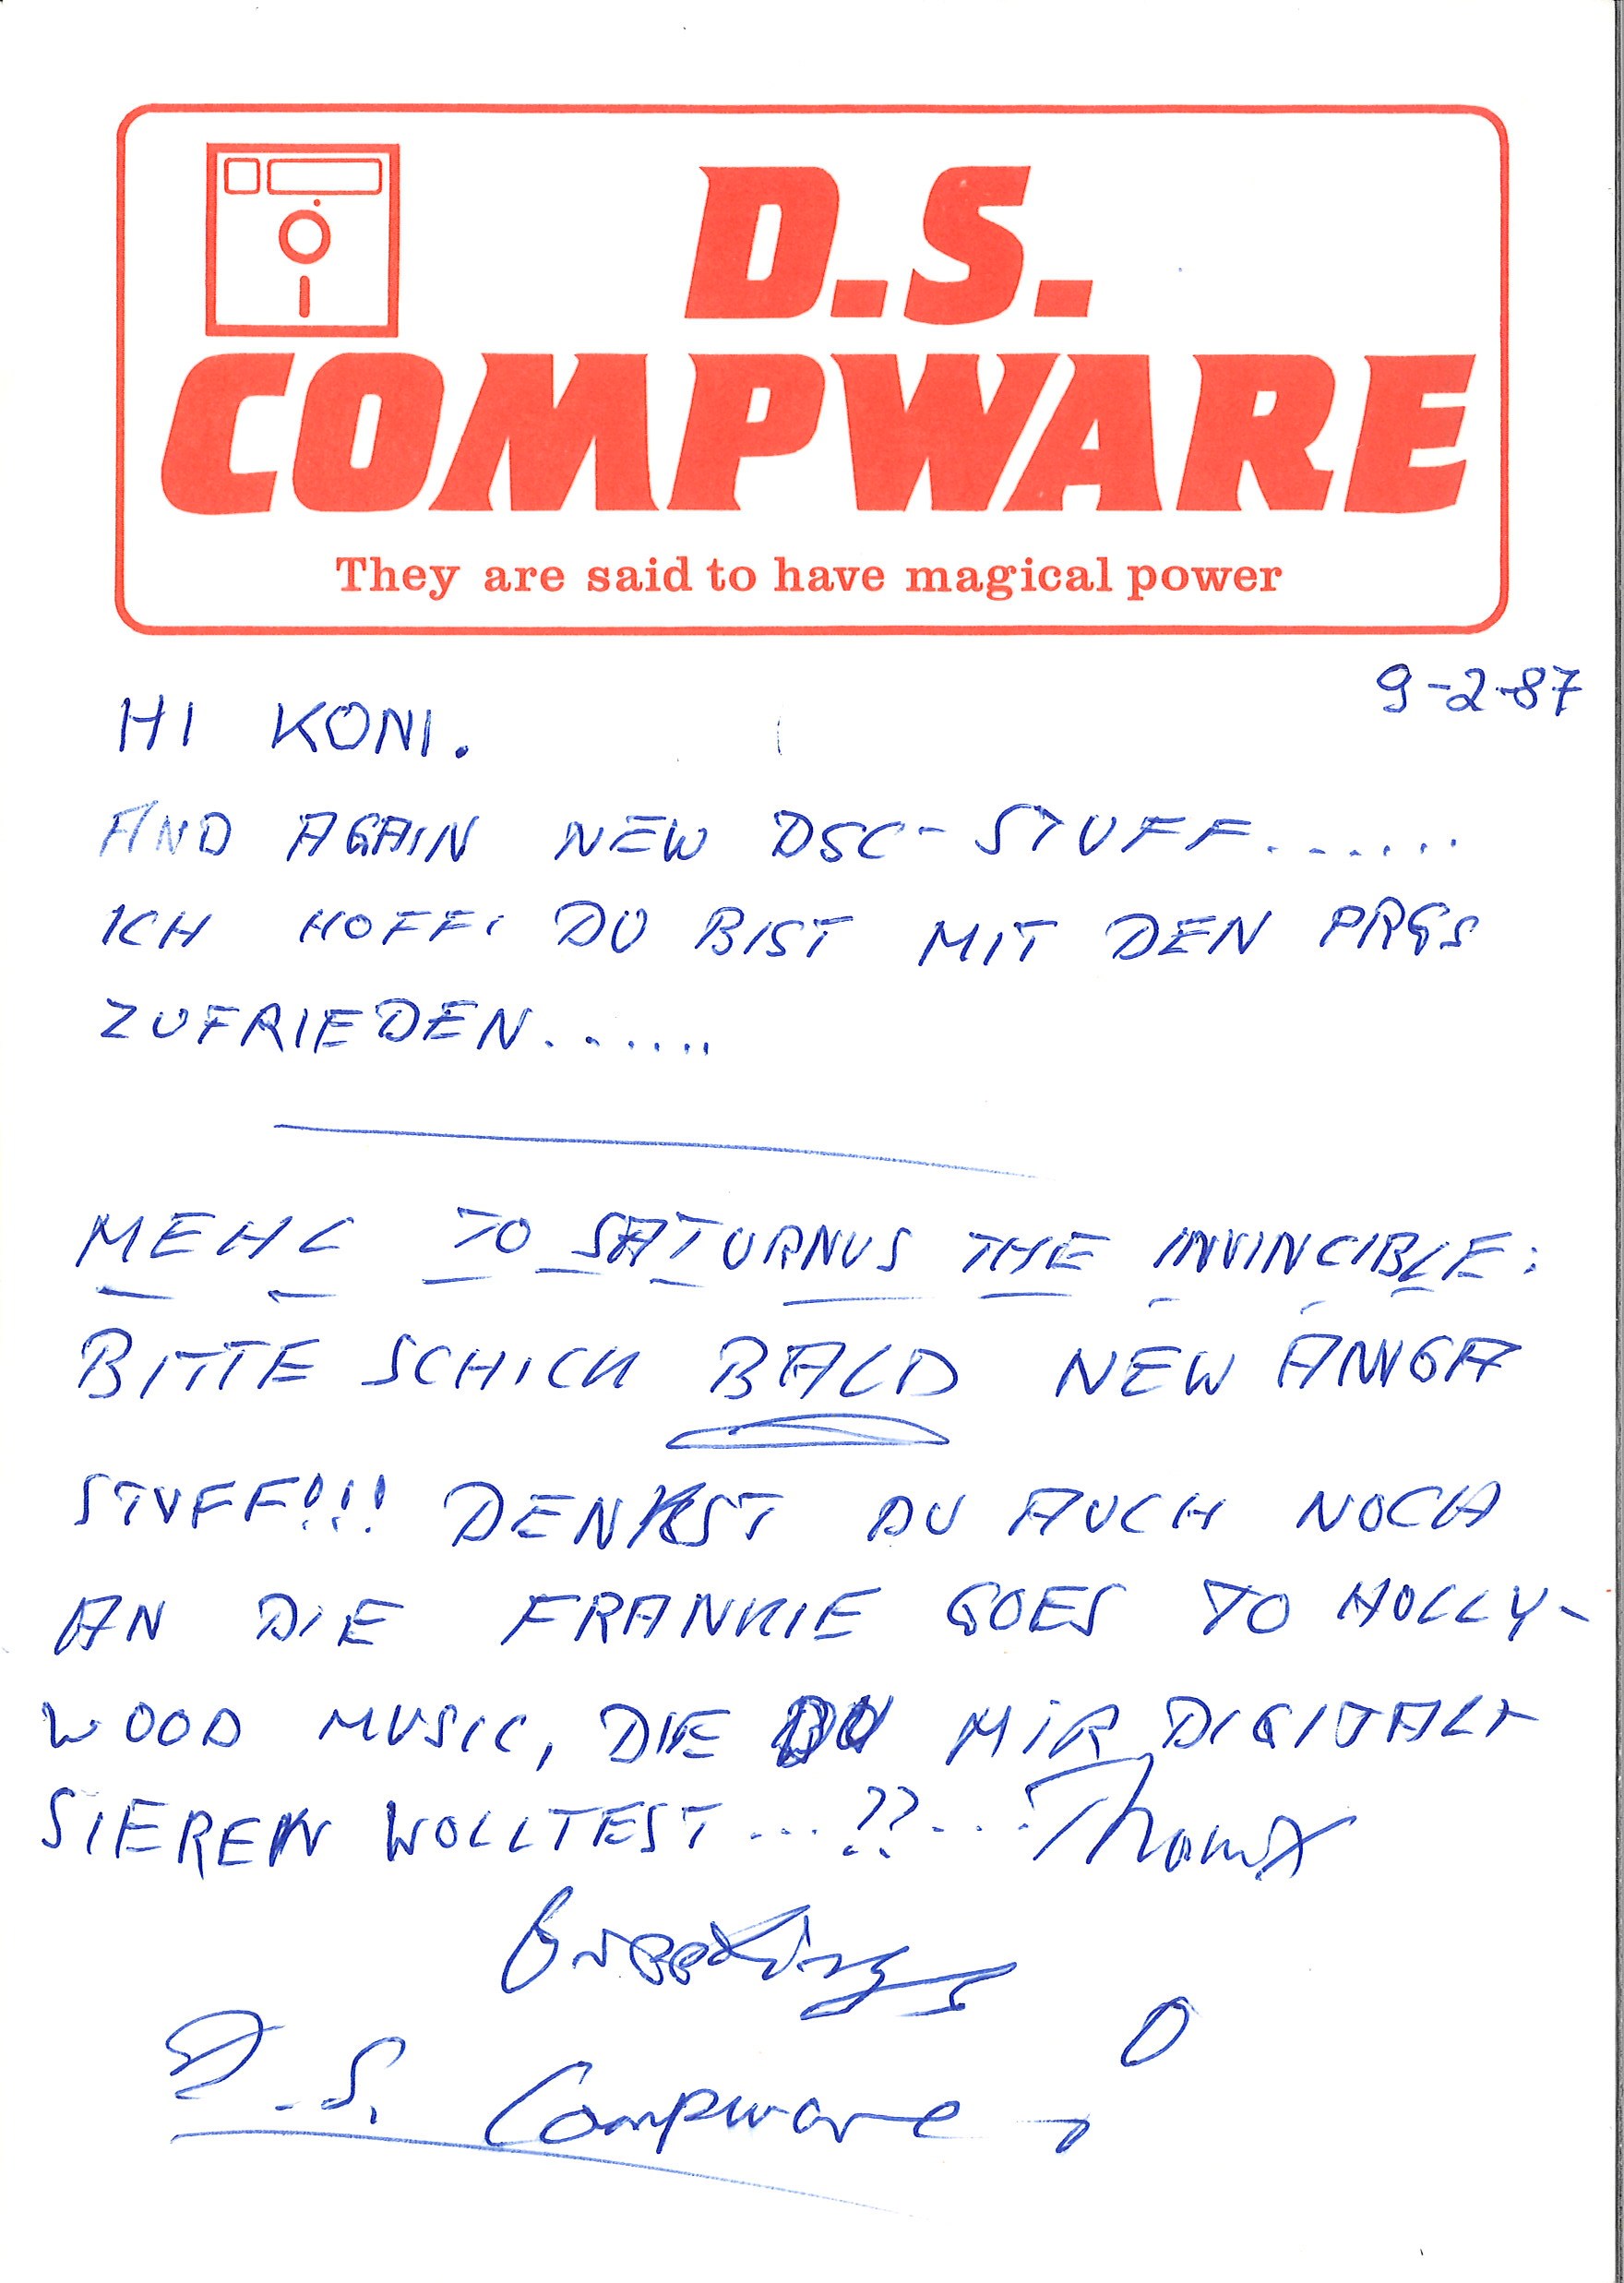 D.S.
COMPWARE
They are said to have magical power
9-2-87
HI KONI.
AND AGAIN NEW DSC-STUFF.......
ICH HOFF' DU BIST MIT DEN PRGS
ZUFRIEDEN.......
MEHL TO SATURNUS THE INVINCIBLE:
BITTE SCHICK BALD NEW AMIGA
STUFF!!! DENKST DU AUCH NOCH
AN DIE FRANKIE GOES TO HOLLY-
WOOD MUSIC, DIE DU MIR DIGITALI-
SIEREN WOLLTEST...??...Thanx
Greetings
D.S. Compware